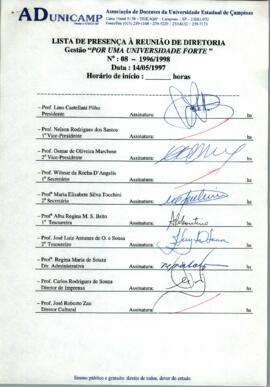 ADUNICAMP
Associação de Docentes da Universidade Estadual de Campinas
LISTA DE PRESENÇA À REUNIÃO DE DIRETORIA
Gestão "POR UMA UNIVERSIDADE FORTE"
Nº : 08 - 1996/1998
Data : 14/05/1997
Horário de início : ________ horas
- Prof. Lino Castellani Filho
Presidente Assinatura: hs
- Prof. Nelson Rodrigues dos Santos
1º Vice-Presidente Assinatura: hs
- Prof. Osmar de Oliveira Marchese
2º Vice-Presidente Assinatura: hs
- Prof. Wilmar da Rocha D'Angelis
1º Secretário Assinatura: hs
- Profª Maria Elisabete Silva Tocchini
2ª Secretária Assinatura: hs
- Profª Alba Regina M. S. Brito
1ª Tesoureira Assinatura: hs
- Prof. José Luiz Antunes de O. e Sousa
2º Tesoureiro Assinatura: hs
- Profª. Regina Maria de Souza
Div. Administrativa Assinatura: hs
- Prof. Carlos Rodrigues de Souza
Diretor de Imprensa Assinatura: hs
- Prof. José Roberto Zan
Diretor Cultural Assinatura: hs
Ensino público e gratuito: direito de todos, dever do estado.